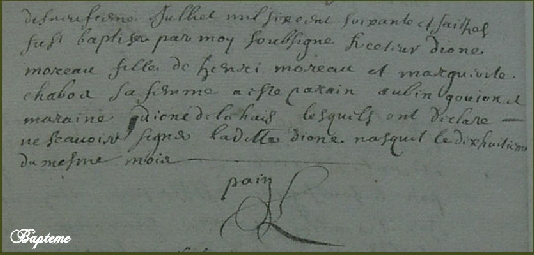 juillet mil six cent soixante et
fust baptisee par moy soubsigne dione
moreau fille de henri moreau et marguerite
chabod sa femme a este parain aubin goujon et
maraine de la hais lesquels ont declare
ne scauoir signer ladite dione nasquit le dixhuitieme
du mesme mois
pain
Bapteme